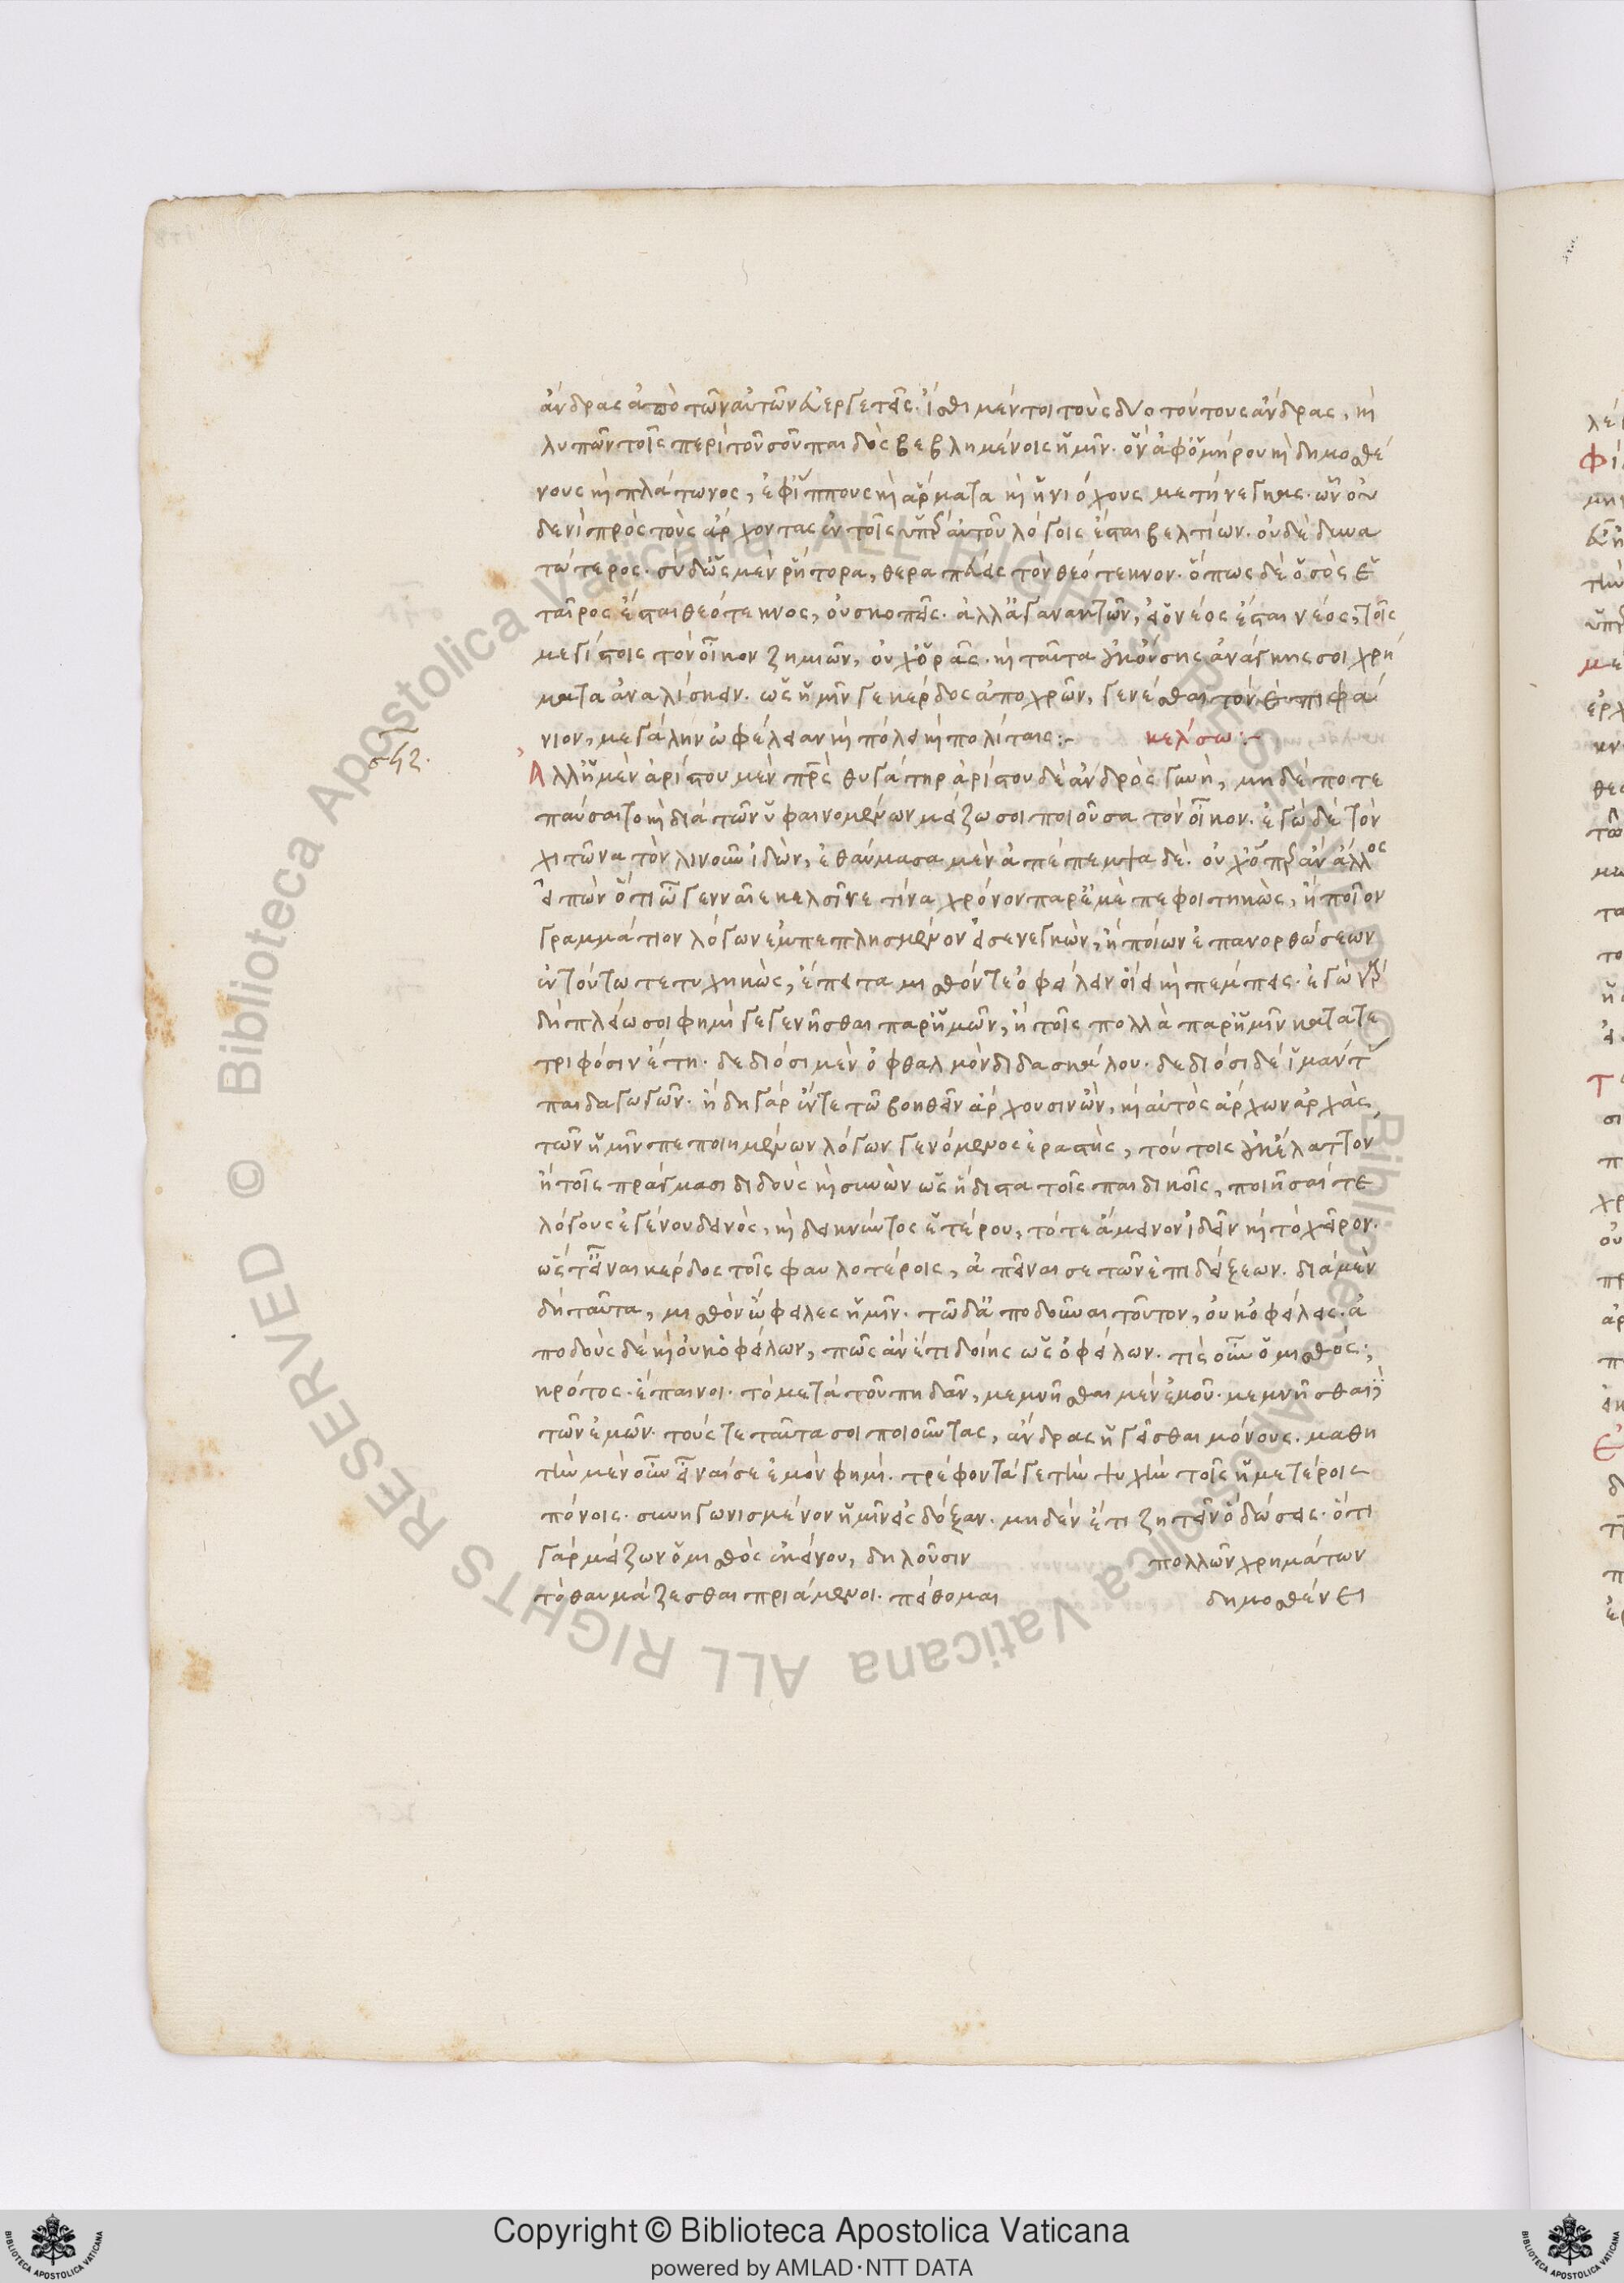 ἄνδρας ἀπὸ τῶν αὐτῶν εὐεργετεῖς. ἴσθι μέντοι τοὺς δύο τούτους ἄνδρας, καὶ
λυπῶν τοῖς περὶ τὸν σὸν παιδὸς βεβλημένοις ἡμῖν. ὃν ἀφ' ὁμήρου καὶ δημοσθέ
νους καὶ πλάτωνος, ἐφ' ἵππους καὶ ἅρματα καὶ ἡνιόχους μετήνεγκας. ὧν οὐ
δενὶ πρὸς τοὺς ἄρχοντας ἐν τοῖς ὑπὲρ αὐτοῦ λόγοις ἔσται βελτίων. οὐδὲ δυνα
τώτερος. σὺ δ' ὡς μὲν ῥήτορα, θεραπεύεις τὸν θεότεκνον. ὅπως δὲ ὁ σὸς ἑ
ταῖρος ἔσται θεότεκνος, οὐ σκοπεῖς. ἀλλ' ἀγανακτῶν, εἰ ὁ νέος ἔσται νέος, τοῖς
μεγίστοις τὸν οἶκον ζημιῶν, οὐχ ὁρᾷς. καὶ ταῦτα ἐκούσης ἀνάγκης σοι χρή
ματα ἀναλίσκειν. ὡς ἡμῖν γε κέρδος ἀποχρῶν, γενέσθαι τὸν ἐπιφά
νιον, μεγάλην ὠφέλειαν καὶ πόλει καὶ πολίταις:-
κέλσω:-
σϟζ.
Ἀλλ' ἡ μὲν ἀρίστου μὲν πατρὸς θυγάτηρ ἀρίστου δὲ ἀνδρὸς γυνὴ, μηδέποτε
παύσαιτο καὶ διὰ τῶν ὑφαινομένων μείζω σοι ποιοῦσα τὸν οἶκον. ἐγὼ δὲ τὸν
χιτῶνα τὸν λινοῦν ἰδὼν, ἐθαύμασα μὲν ἀπέπεμψα δέ. οὐχ ὅπερ ἂν ἄλλος
εἰπὼν ὅτι ὦ γενναῖε κελσῖνε τίνα χρόνον παρ' ἐμὲ πεφοιτηκὼς, ἢ ποῖον
γραμμάτιον λόγων ἐμπεπλησμένον εἰσενεγκὼν, ἢ ποίων ἐπανορθώσεων
ἐν τούτω τετυχηκὼς, ἔπειτα μισθόν τε ὀφείλειν οἴει καὶ πέμπεις. ἐγὼ γὰρ
δὴ πλείω σοι φημὶ γεγενῆσθαι παρ' ἡμῶν, ἢ τοῖς πολλὰ παρ' ἡμῖν κατατε
τριφόσιν ἔτη. δεδιόσι μὲν ὀφθαλμὸν διδασκάλου. δεδιόσι δὲ ἱμάντα
παιδαγωγῶν. ἤδη γὰρ ἔν τε τῶ βοηθεῖν ἄρχουσιν ὢν, καὶ αὐτὸς ἄρχων ἀρχὰς
τῶν ἡμῖν πεποιημένων λόγων γενόμενος ἐραστὴς, τούτοις οὐκ ἔλαττον
ἢ τοῖς πράγμασι διδοὺς καὶ συνὼν ὡς ἥδιστα τοῖς παιδικοῖς, ποιῆσαί τε
λόγους ἐγένου δεινὸς, καὶ δεικνύντος ἑτέρου, τό τε ἄμεινον ἰδεῖν καὶ τὸ χεῖρον.
ὥστ' εἶναι κέρδος τοῖς φαυλοτέροις, ἀπεῖναι σε τῶν ἐπιδείξεων. διὰ μὲν
δὴ ταῦτα, μισθὸν ὤφειλες ἡμῖν. τῶ δ' ἀποδοῦναι τοῦτον, οὐκ ὀφείλεις. ἀ
ποδοὺς δὲ καὶ οὐκ ὀφείλων, πῶς ἂν ἔτι δοίης ὡς ὀφείλων. τίς οὖν ὁ μισθός;
κρότος. ἔπαινοι. τὸ μετὰ τοῦ πηδᾶν, μεμνῆσθαι μὲν ἐμοῦ. μεμνῆσθαι δὲ
τῶν ἐμῶν. τούς τε ταῦτα σοι ποιοῦντας, ἄνδρας ἡγεῖσθαι μόνους. μαθη
τὴν μὲν οὖν εἶναί σε ἐμὸν φημί. τρέφοντά γε τὴν ψυχὴν τοῖς ἡμετέροις
πόνοις. συνηγωνισμένον ἡμῖν εἰς δόξαν. μηδὲν ἔτι ζητεῖν ὃ δώσεις. ὅτι
γὰρ μείζων ὁ μισθὸς ἐκείνου, δηλοῦσιν πολλῶν χρημάτων
τὸ θαυμάζεσθαι πριάμενοι. πείθομαι δημοσθένει
Copyright © Biblioteca Apostolica Vaticana
powered by AMLAD·NTT DATA